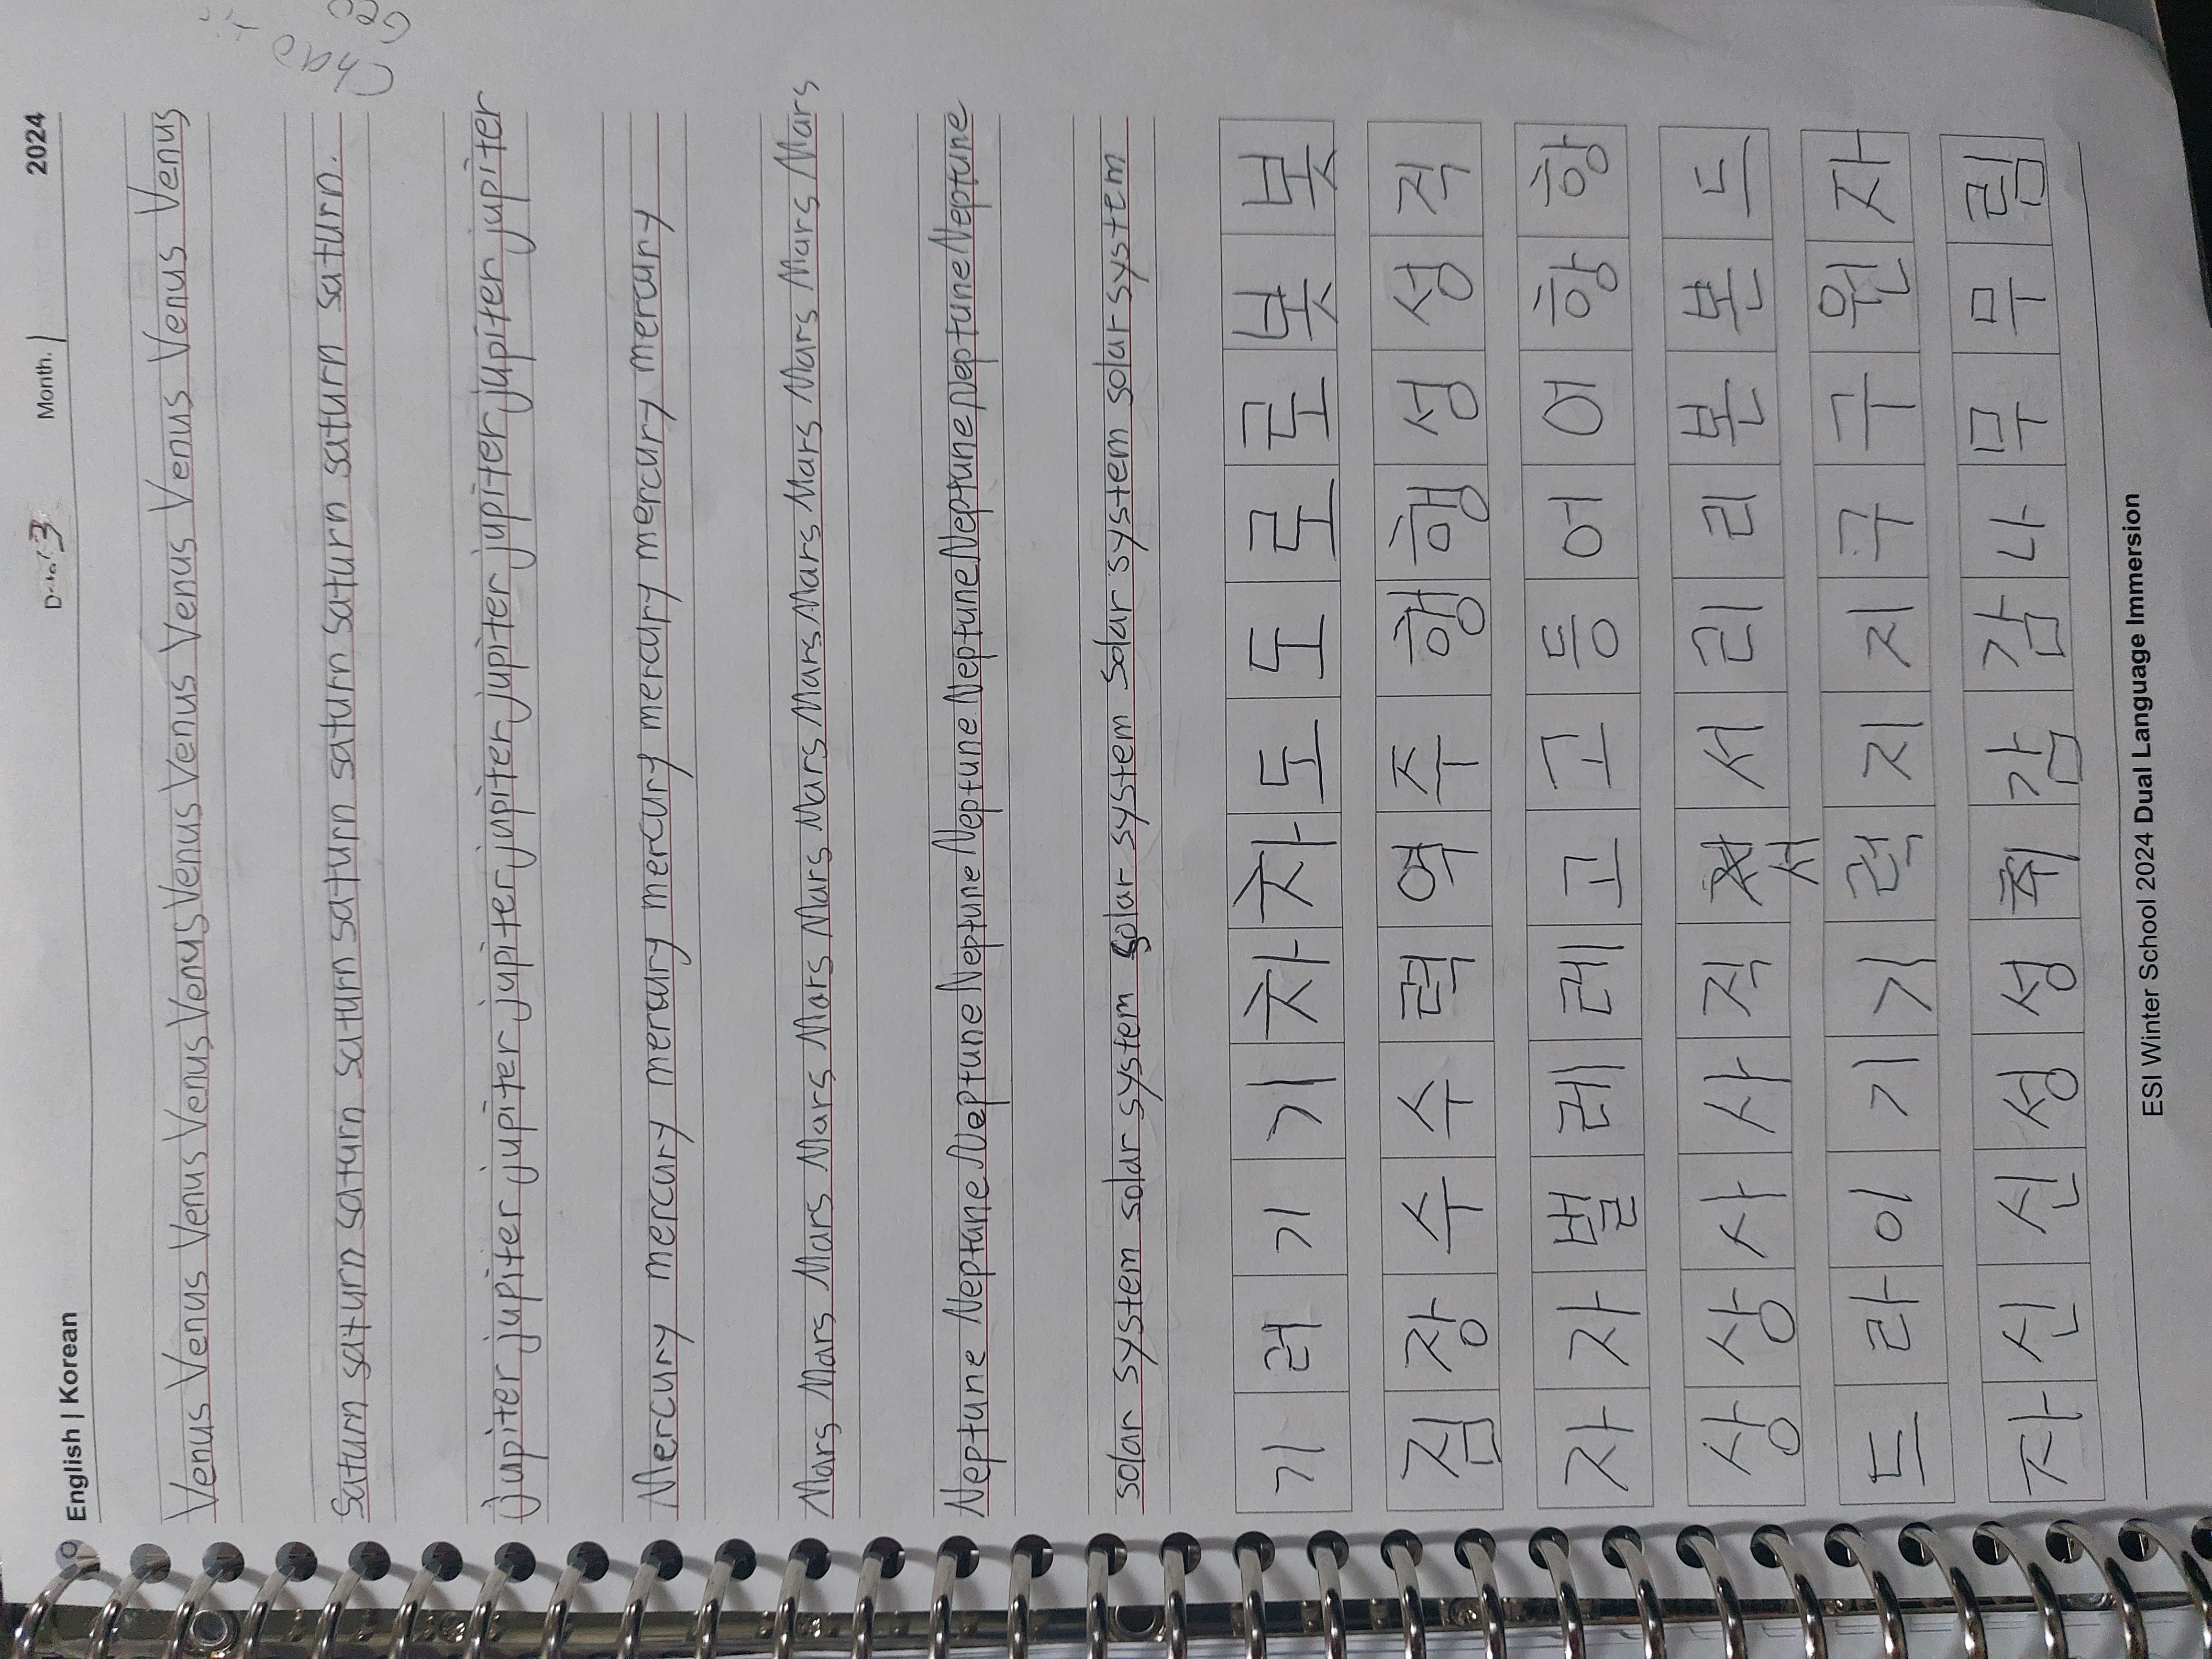 English | Korean 3 Month. 1 2024
Venus Venus Venus Venus Venus Venus Venus Venus Venus Venus Venus Venus
Saturn saturn saturn saturn saturn saturn saturn saturn saturn saturn saturn saturn.
jupiter jupiter jupiter jupiter jupiter jupiter jupiter jupiter jupiter jupiter jupiter jupiter
Mercury mercury mercury mercury mercury mercury mercury
Mars Mars Mars Mars Mars Mars Mars Mars Mars Mars Mars Mars Mars
Neptune Neptune Neptune Neptune Neptune Neptune Neptune Neptune Neptune
solar system solar system solar system solar system solar system
기 러 기 기 차 차 도 도 로 로 봇 봇
집 장 수 수 력 역 주 행 행 성 성 적
자 자 벌 레 레 고 고 등 어 어 항 항
상 상 사 사 직 서 서 리 리 본 본 드
드 라 이 기 기 럭 지 지 구 구 원 자
자 신 신 성 성 취 감 감 나 무 무 림
ESI Winter School 2024 Dual Language Immersion